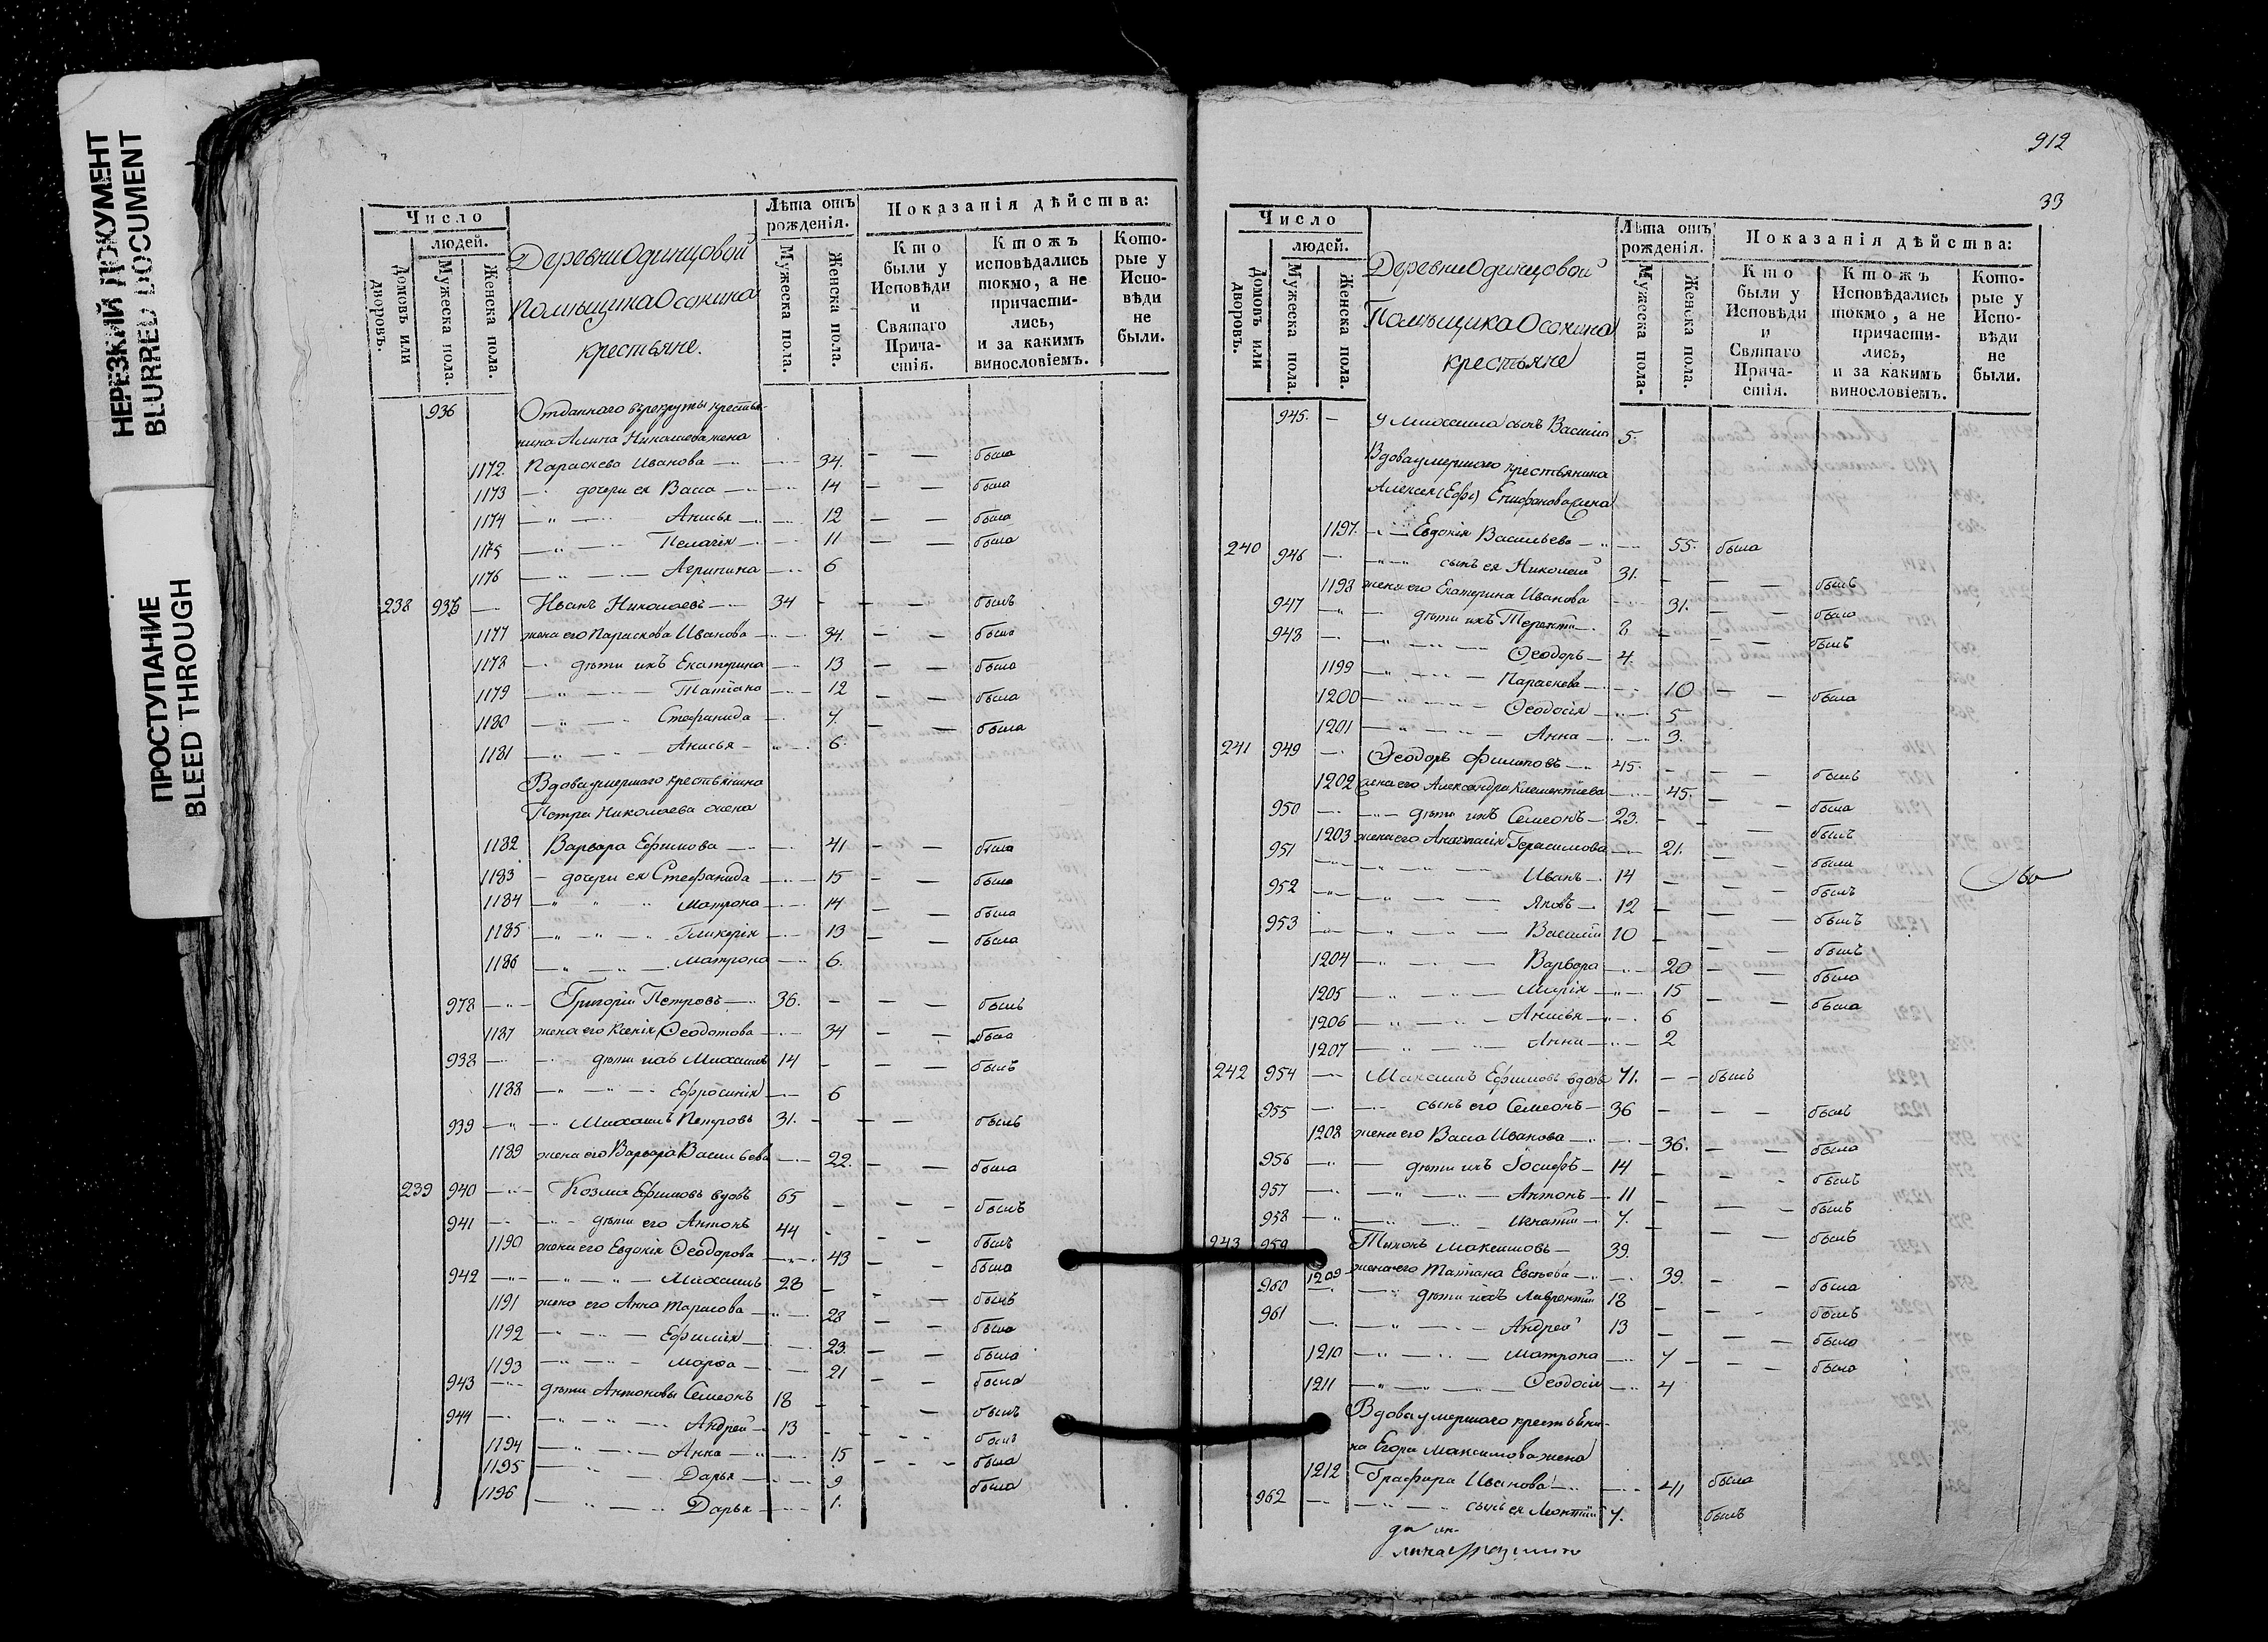 НЕРЕЗКИЙ ДОКУМЕНТ
BLURRED DOCUMENT
ПРОСТУПАНИЕ
BLEED THROUGH
Число
людей.
Домовъ или дворовъ.
Мужеска пола.
Женска пола.
Деревни Одинцовой
Помѣщика Осокина
крестьяне.
Лѣта отъ рожденія.
Мужеска пола.
Женска пола.
Показанія дѣйства:
Кто были у Исповѣди и Святаго Прича- стія.
Ктожъ исповѣдались токмо, а не причасти- лись, и за какимъ винословіемъ.
Кото- рые у Испо- вѣди не были.
936 Отданнаго въ рекруты крестья-
нина Николаева жена
1172. Параскева Иванова 34. была
1173 дочери ея Васса 14 была
1174 Анисья 12 была
1175 Пелагія 11 была
1176 Агрипина 6
238 Иванъ Николаевъ 34 былъ
1177 жена его Параскева Иванова 34. была
1178 дѣти ихъ Екатерина 13 была
1179 Татіана 12 была
1180 Стефанида 7. была
1181 Анисья 6.
Вдова умершаго крестьянина
Петра Николаева жена
1182 Варвара Ефимова 41 была
1183 дочери ея Стефанида 15 была
1184 Матрона 14 была
1185 Гликерія 13 была
1186 Матрона 6.
978 Григорій Петровъ 36. былъ
1187 жена его Ксенія Ѳеодотова 34 была
938 дѣти ихъ Михаилъ 14 былъ
1188 Ефросинія 6
939 Михаилъ Петровъ 31. былъ
1189 жена его Варвара Васильева 22. была
239 940 Козма Ефимовъ вдовъ 65 былъ
941 дѣти его Антонъ 44 былъ
1190 жена его Евдокія Ѳеодорова 43 была
942 Михаилъ 28 былъ
1191 жена его Анна Тарасова 28 была
1192 Ефимія 23. была
1193 Марѳа 21 была
943 дѣти Антоновы Семеонъ 18 былъ
944 Андрей 13 былъ
1194 Анна 15 была
1195 Дарья 9 была
1196 Дарья 1.
912
33
Число
людей.
Домовъ или дворовъ.
Мужеска пола.
Женска пола.
Деревни Одинцовой
Помѣщика Осокина
крестьяне
Лѣта отъ рожденія.
Мужеска пола.
Женска пола.
Показанія дѣйства:
Кто были у Исповѣди и Святаго Прича- стія.
Ктожъ Исповѣдались токмо, а не причасти- лись, и за какимъ винословіемъ.
Кото- рые у Испо- вѣди не были.
945. У Михаила сынъ Василій 5.
Вдова умершаго крестьянина
Алексея (Ефи) Епифанова жена
1197. Евдокія Васильева 55. была
240 946 сынъ ея Николай 31. былъ
1198 жена его Екатерина Иванова 31. была
947 дѣти ихъ Терентій 8 былъ
948 Ѳеодоръ 4.
1199 Параскева 10 была
1200 Ѳеодосія 5
1201 Анна 3.
241 949 Ѳеодоръ Филиповъ 45. былъ
1202 жена его Александра Клементиева 45. была
950 дѣти ихъ Семеонъ 23. былъ
1203 жена его Анастасія Герасимова 21. была
951 Иванъ 14 былъ
952 Яковъ 12 былъ
953 Василій 10 былъ
1204 Варвара 20 была
1205 Марія 15 была
1206 Анисья 6
1207 Анна 2
242 954 Максимъ Ефимовъ вдовъ 71. былъ
955 сынъ его Семеонъ 36 былъ
1208 жена его Васса Иванова 36. была
956 дѣти ихъ Іосифъ 14 былъ
957 Антонъ 11 былъ
958 Игнатій 7. былъ
243 959 Тихонъ Максимовъ 39.
1209 жена его Татіана Евсѣева 39. была
960 дѣти ихъ Лаврентій 18 былъ
961 Андрей 13 была
1210 Матрона 7 была
1211 Ѳеодосія 4
Вдова умершаго крестьяни-
на Егора Максимова жена
1212 Графира Иванова 41 была
962 сынъ ея Леонтій 7. былъ